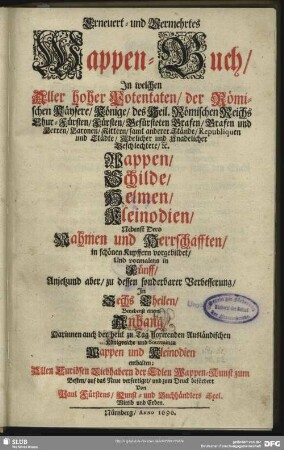 Erneuert- und Vermehrtes
Wappen-Buch/
In welchen
Aller hoher Potentaten/ der Römi-
schen Käysere/ Könige/ des Heil. Römischen Reichs
Chur-Fürsten/ Fürsten/ Gefürsteten Grafen/ Grafen und
Herren/ Baronen/ Rittern/ samt anderer Stände/ Republiquen
und Städte/ Adelicher und Geschlechtere/ &c.
Wappen/
Schilde/
Helmen/
Kleinodien/
Nebenst Dero
Nahmen und Herrschafften/
in schönen Kupffern vorgebildet/
Und vormalen in
Fünff/
Anjetzund aber/ zu dessen sonderbarer Verbesserung/
In
Sechs Theilen/
Benebenst einem
Anhang/
Darinnen auch der heut zu Tag florirenden Ausländischen
Königreiche und
Wappen und Kleinodien
enthalten:
Allen Curiösen Liebhabern der Edlen Wappen-Kunst zum
Besten/ auf das Neue verfertiget/ und zum Druck befördert
Von
Paul Fürstens/ Kunst- und Buchhändlers Seel.
Wittib und Erben.
Nürnberg/ Anno 1696.
SLUB